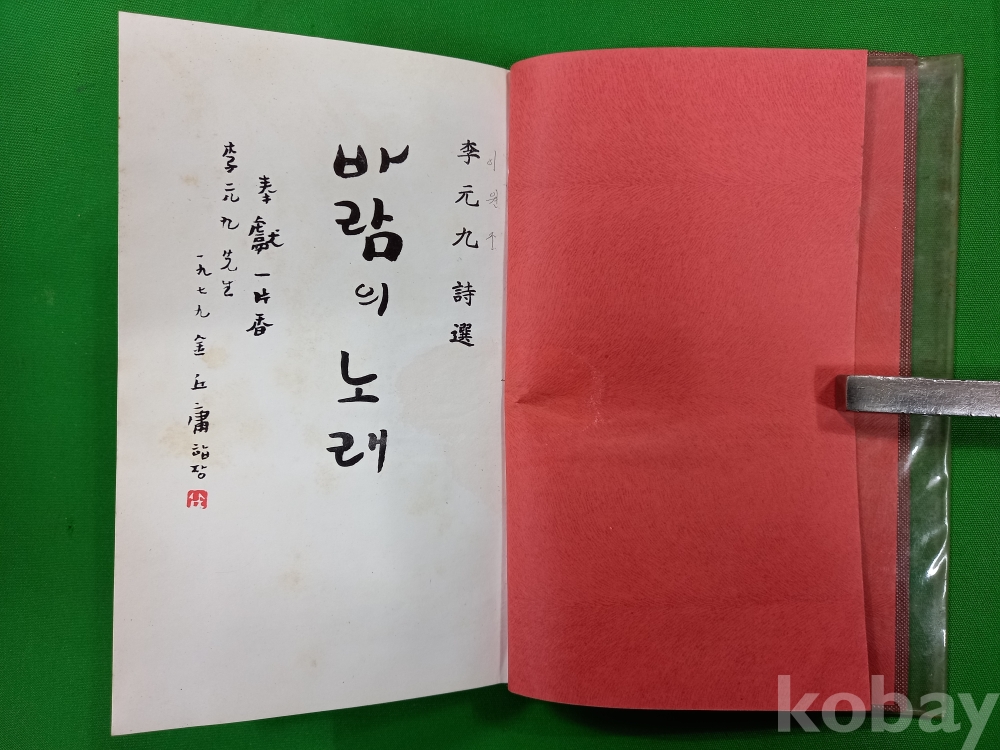 李元九 詩選
바람의 노래
奉獻一片香
李元九 先生
一九七九 金丘庸
kobay